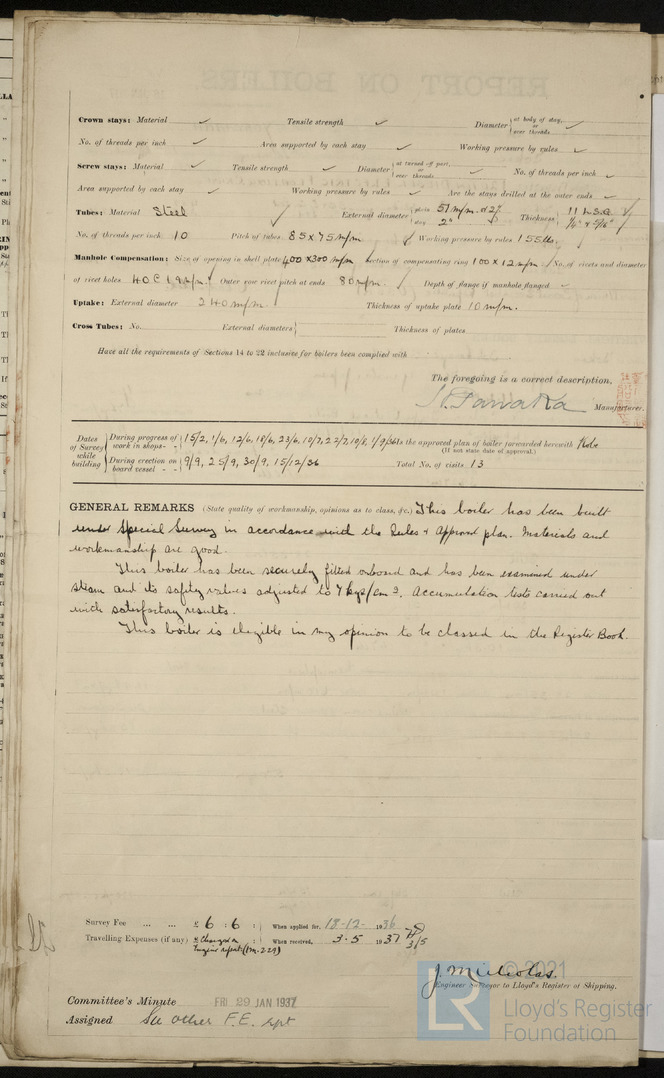 REPORT ON BOILERS.
Crown stays: Material ✓ Tensile strength ✓ Diameter { at body of stay, or over threads ✓
No. of threads per inch ✓ Area supported by each stay ✓ Working pressure by rules ✓
Screw stays: Material ✓ Tensile strength ✓ Diameter { at turned off part, or over threads ✓ No. of threads per inch ✓
Area supported by each stay ✓ Working pressure by rules ✓ Are the stays drilled at the outer ends ✓
Tubes: Material Steel ✓ External diameter { plain 51 m/m. stay 2" Thickness { 11 L.S.G. 1/4" & 5/16" ✓
No. of threads per inch 10 Pitch of tubes 85 x 75 m/m ✓ Working pressure by rules 155 lbs.
Manhole Compensation: Size of opening in shell plate 400 x 300 m/m Section of compensating ring 100 x 12 m/m ✓ No. of rivets and diameter
of rivet holes 40 @ 19 m/m. Outer row rivet pitch at ends 80 m/m. Depth of flange if manhole flanged ✓
Uptake: External diameter 240 m/m. Thickness of uptake plate 10 m/m.
Cross Tubes: No. External diameters { Thickness of plates
Have all the requirements of Sections 14 to 22 inclusive for boilers been complied with
The foregoing is a correct description,
Manufacturer.
Dates of Survey while building { During progress of work in shops - - } 15/2, 1/6, 12/6, 18/6, 23/6, 10/7, 22/7, 19/8, 1/9/36 Is the approved plan of boiler forwarded herewith Kobe
(If not state date of approval.)
{ During erection on board vessel - - } 9/9, 25/9, 30/9, 15/12/36 Total No. of visits 13
GENERAL REMARKS (State quality of workmanship, opinions as to class, &c.) This boiler has been built
under Special Survey in accordance with the Rules & Approved plan. Materials and
workmanship are good.
This boiler has been securely fitted onboard and has been examined under
steam and its safety valves adjusted to 7 kgs/cm². Accumulation tests carried out
with satisfactory results.
This boiler is eligible in my opinion to be classed in the Register Book.
Survey Fee ... ... £ 6 : 6 : } When applied for, 18-12- 1936
Travelling Expenses (if any) £ Charged on Engine report : } When received, 3.5 1937 3/5
© 2021
Engineer Surveyor to Lloyd's Register of Shipping.
Committee's Minute FRI 29 JAN 1937
Assigned See other F.E. rpt
LR
Lloyd's Register
Foundation